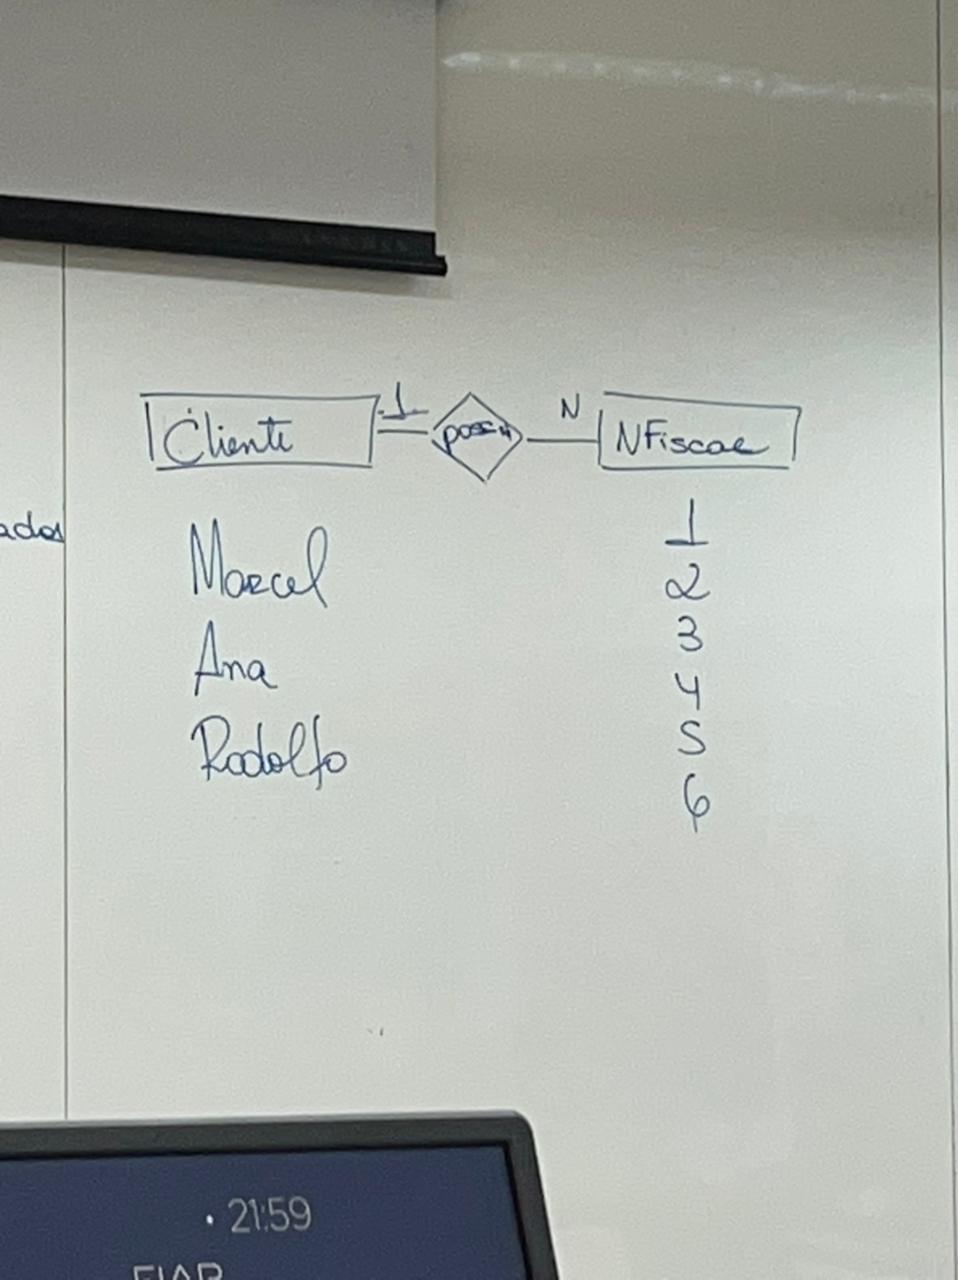 1
N
Cliente
possui
NFiscal
ados
Marcel
Ana
Rodolfo
1
2
3
4
5
6
21:59
FIAP